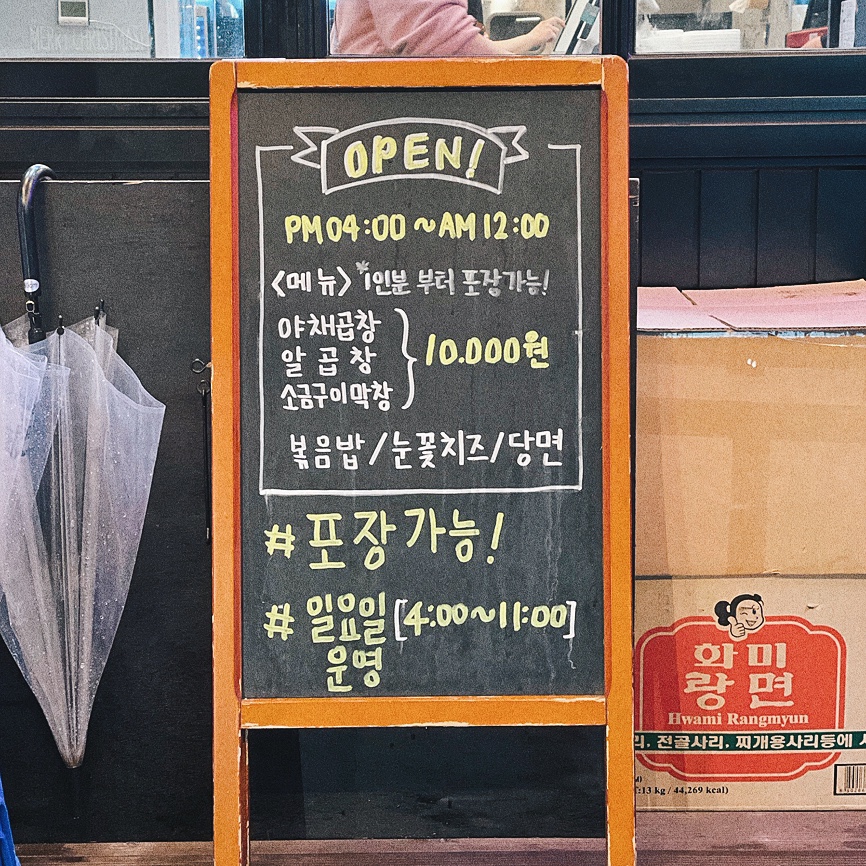 OPEN!
PM 04:00 ~ AM 12:00
<메뉴> *1인분 부터 포장가능!
야채곱창
알곱창
소금구이막창
} 10.000원
볶음밥/눈꽃치즈/당면
# 포장가능!
# 일요일 [4:00~11:00]
운영
화미
랑면
Hwami Rangmyun
리, 전골사리, 찌개용사리등에
13 kg / 44,269 kcal)